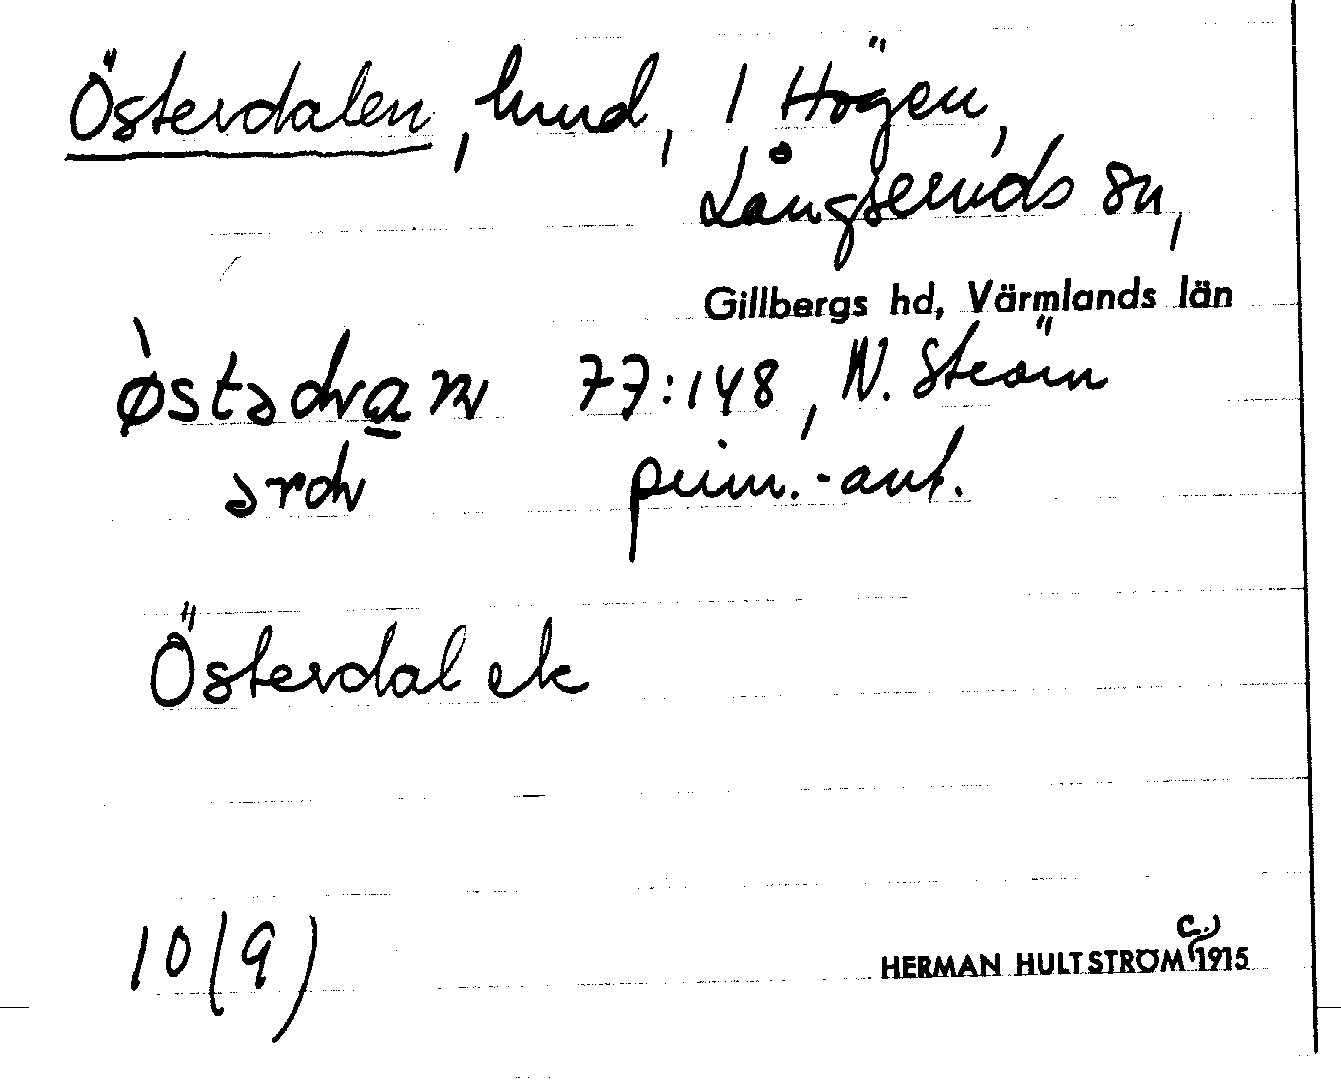 Österdalen, lund, 1 Högen,
Långseruds sn,
Gillbergs hd, Värmlands län
77:148, N. Ström
prim.-ant.
Österdal ek
10(9)
HERMAN HULTSTRÖM c.) 1915